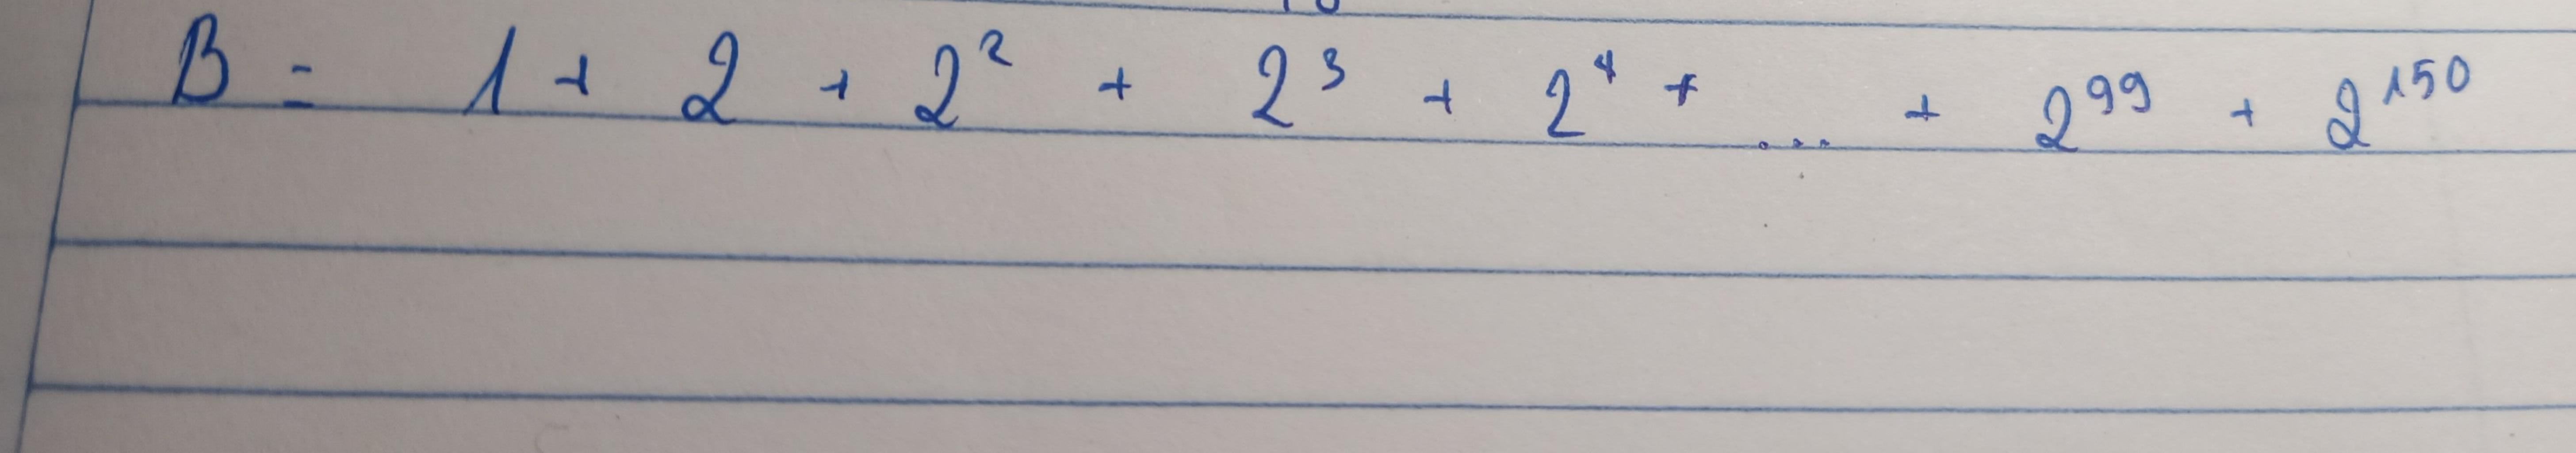 B = 1 + 2 + 2² + 2³ + 2⁴ + ... + 2⁹⁹ + 2¹⁵⁰